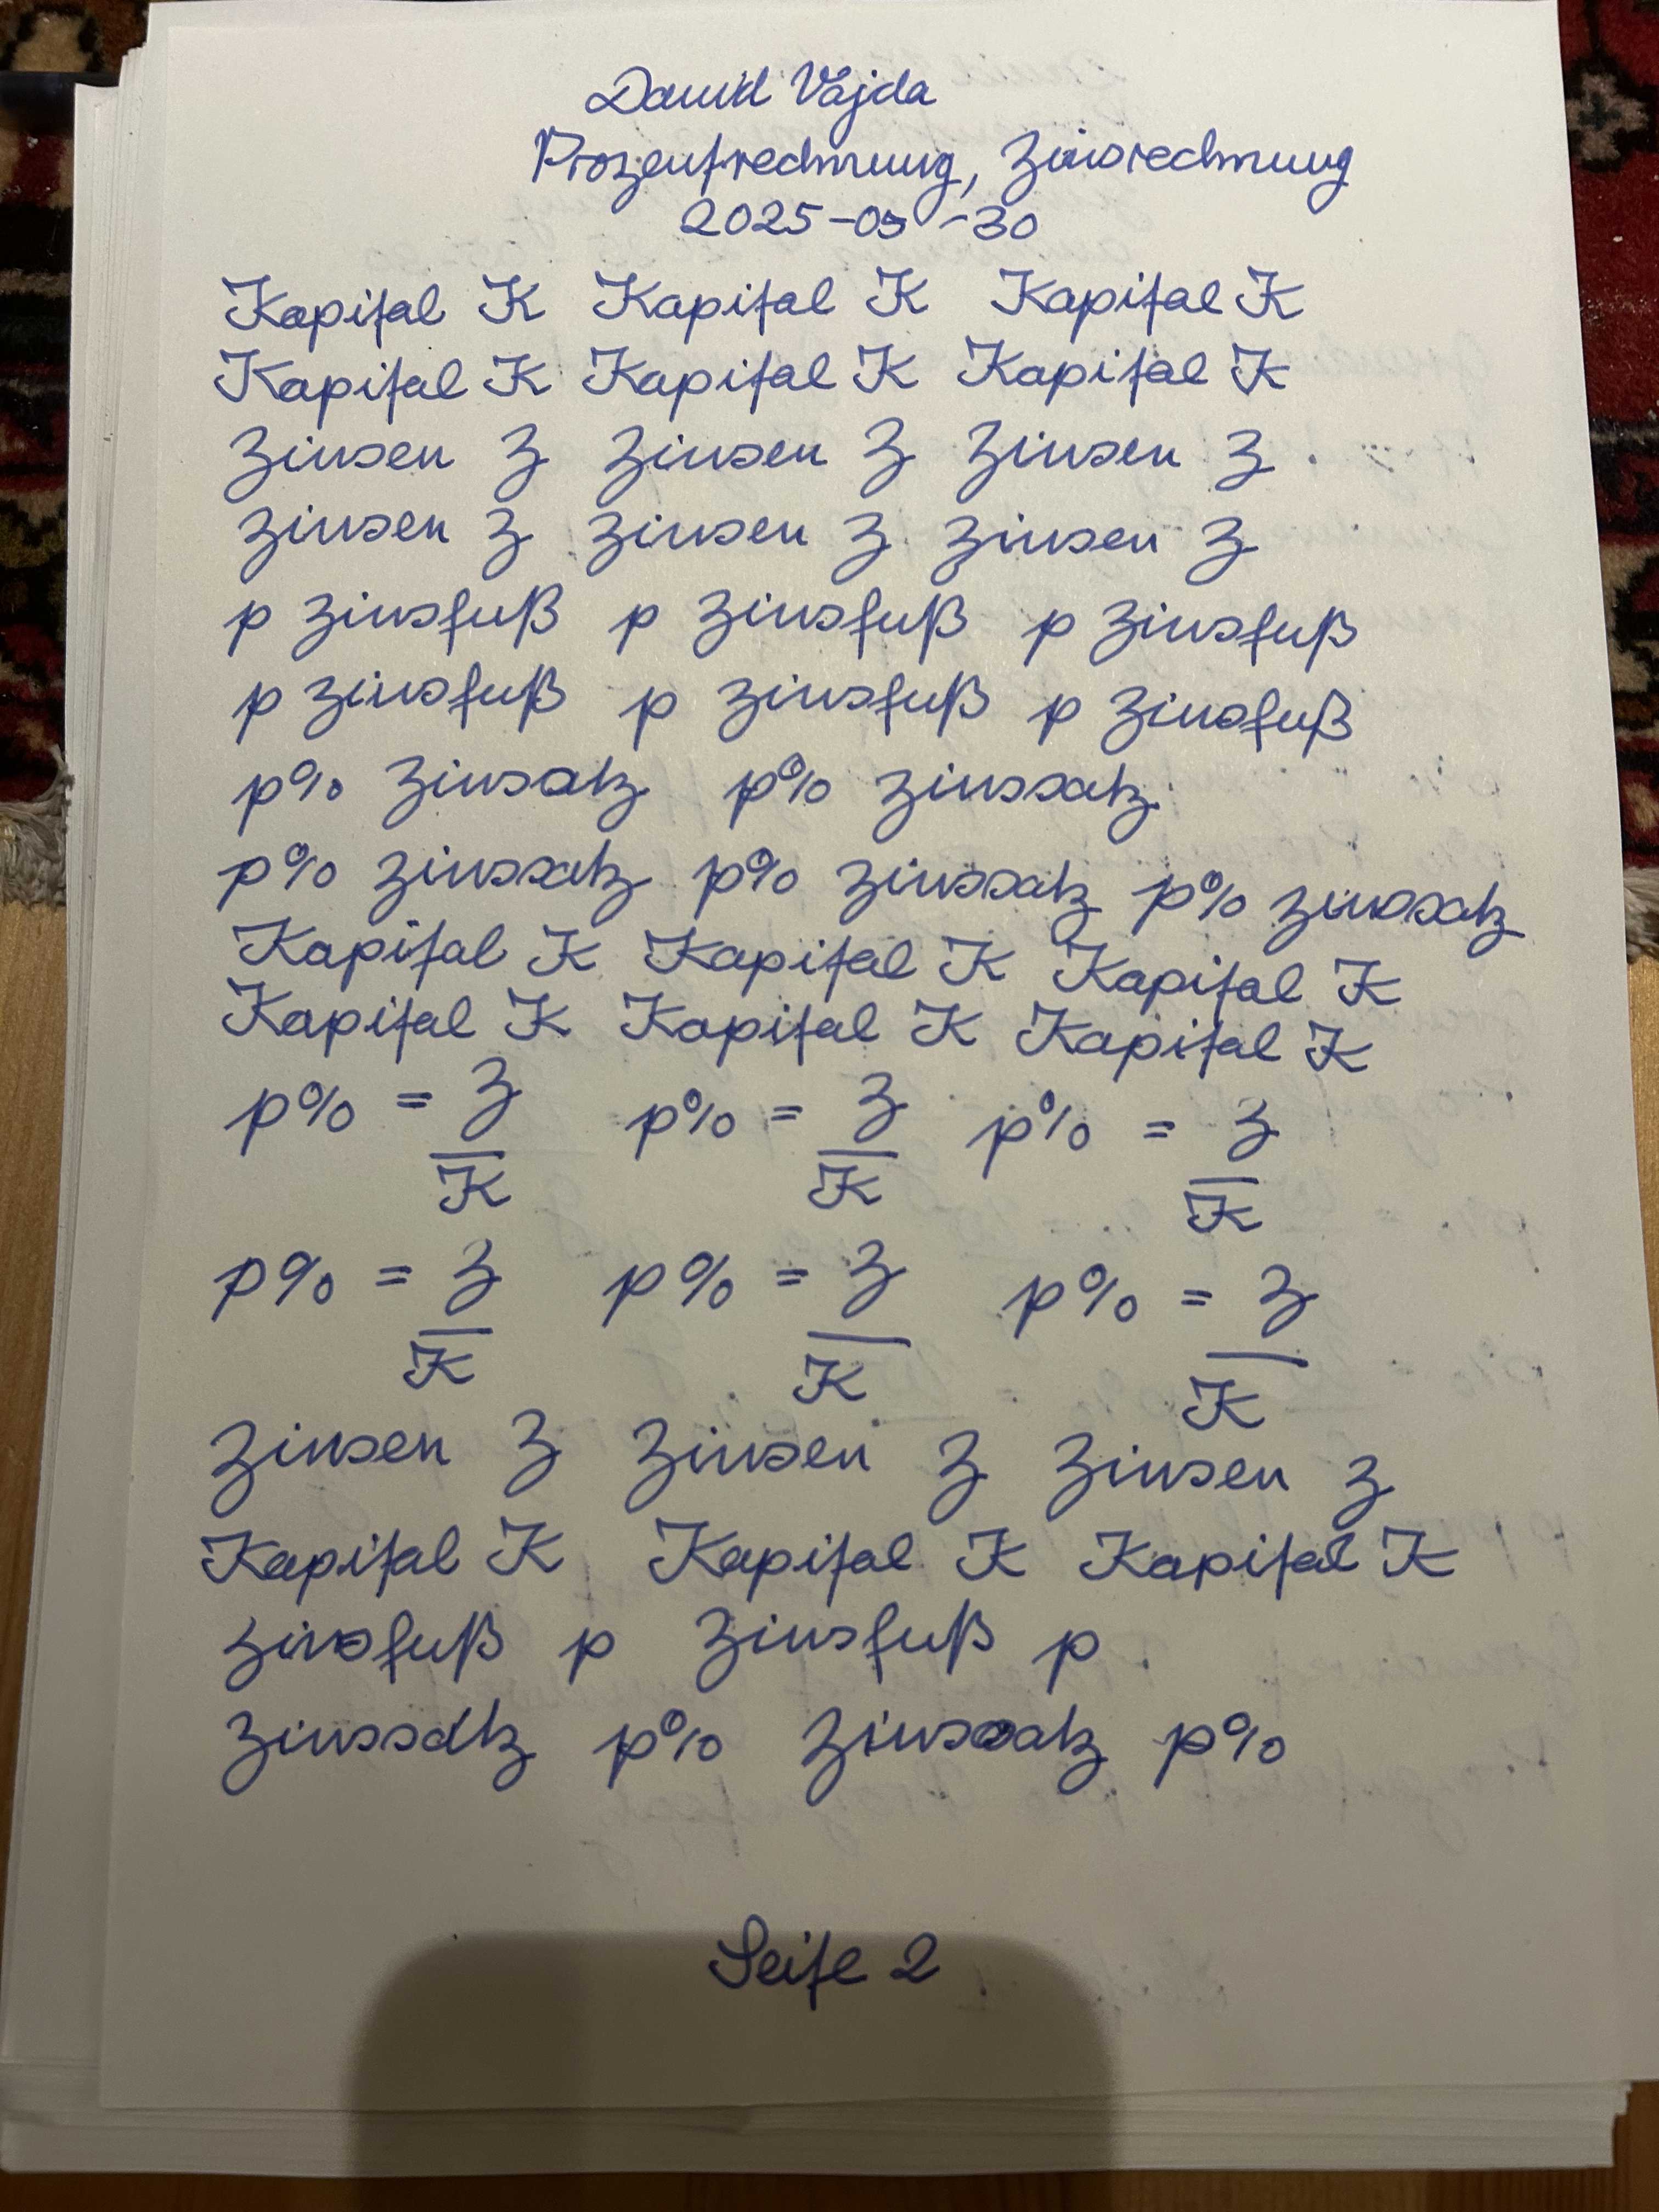 David Vajda
Prozentrechnung, Zinsrechnung
2025-05-30
Kapital K Kapital K Kapital K
Kapital K Kapital K Kapital K
Zinsen Z Zinsen Z Zinsen Z
Zinsen Z Zinsen Z Zinsen Z
p Zinsfuß p Zinsfuß p Zinsfuß
p Zinsfuß p Zinsfuß p Zinsfuß
p% Zinsatz p% Zinssatz
p% Zinssatz p% Zinssatz p% Zinssatz
Kapital K Kapital K Kapital K
Kapital K Kapital K Kapital K
p% = Z p% = Z p% = Z
K K K
p% = Z p% = Z p% = Z
K K K
Zinsen Z Zinsen Z Zinsen Z
Kapital K Kapital K Kapital K
Zinsfuß p Zinsfuß p
Zinssatz p% Zinssatz p%
Seite 2